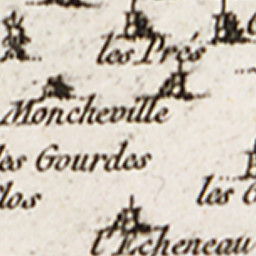 les Prés
Moncheville
les Gourdes
los
les
l'Echeneau